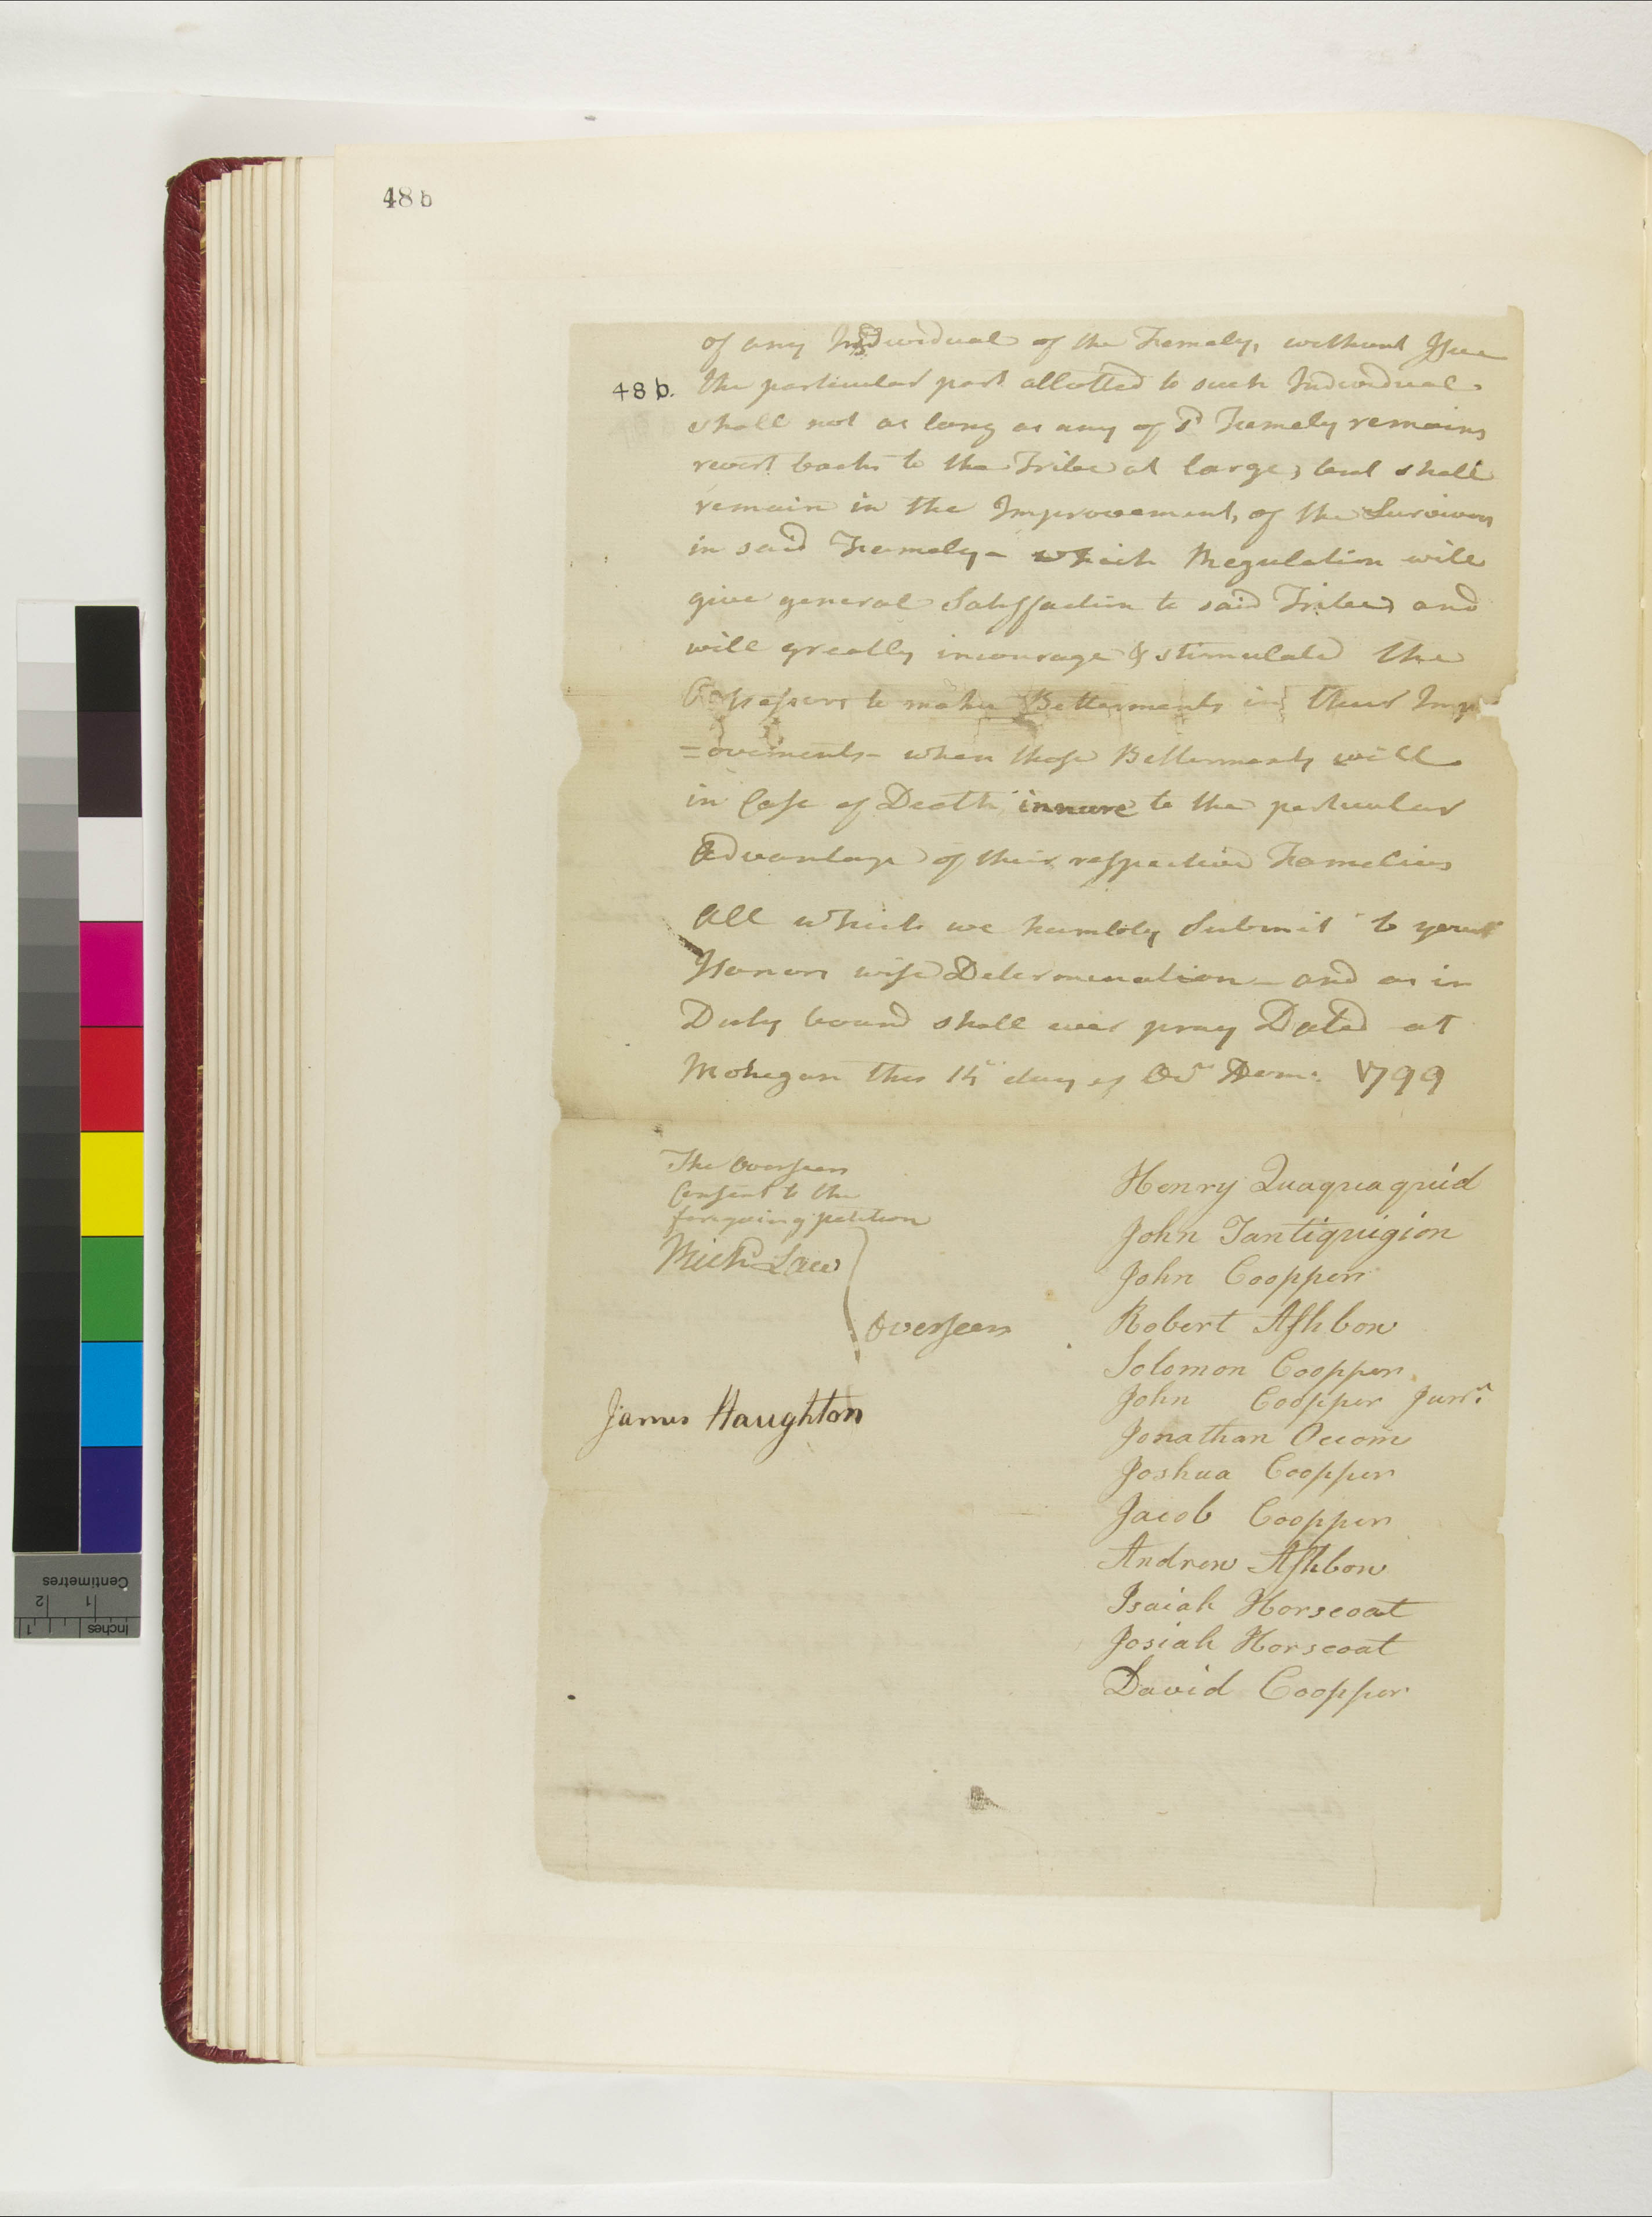 48 b
of any Individual of the Famely, without Issue
48 b. the particular part allotted to such Individual
shall not as long as any of Sd Famely remains
revert back to the Tribe at large, but shall
remain in the Improvement, of the Survivors
in said Famely - which Regulation will
give general Satisfaction to said Tribe and
will greatly incourage & stimulate the
Possessors to make Betterments in their Imp
=ovements - when those Betterments will
in Case of Death innure to the perticular
Advantage of their respective Famelies
All which we humbly Submit to your
Honors wise Determenation - and as in
Duty bound shall ever pray Dated at
Mohegan this 14th day of 1799
The Overseers
Consent to the
foregoing petition
Michl Law
Overseers
James Haughton
Henry Quaquaquid
John Tantiquigion
John Coopper
Robert Ashbow
Solomon Coopper
John Coopper Junr.
Jonathan Occom
Joshua Coopper
Jacob Coopper
Andrew Ashbow
Isaiah Horscoat
Josiah Horscoat
David Coopper
Centimetres
1 2
Inches
1